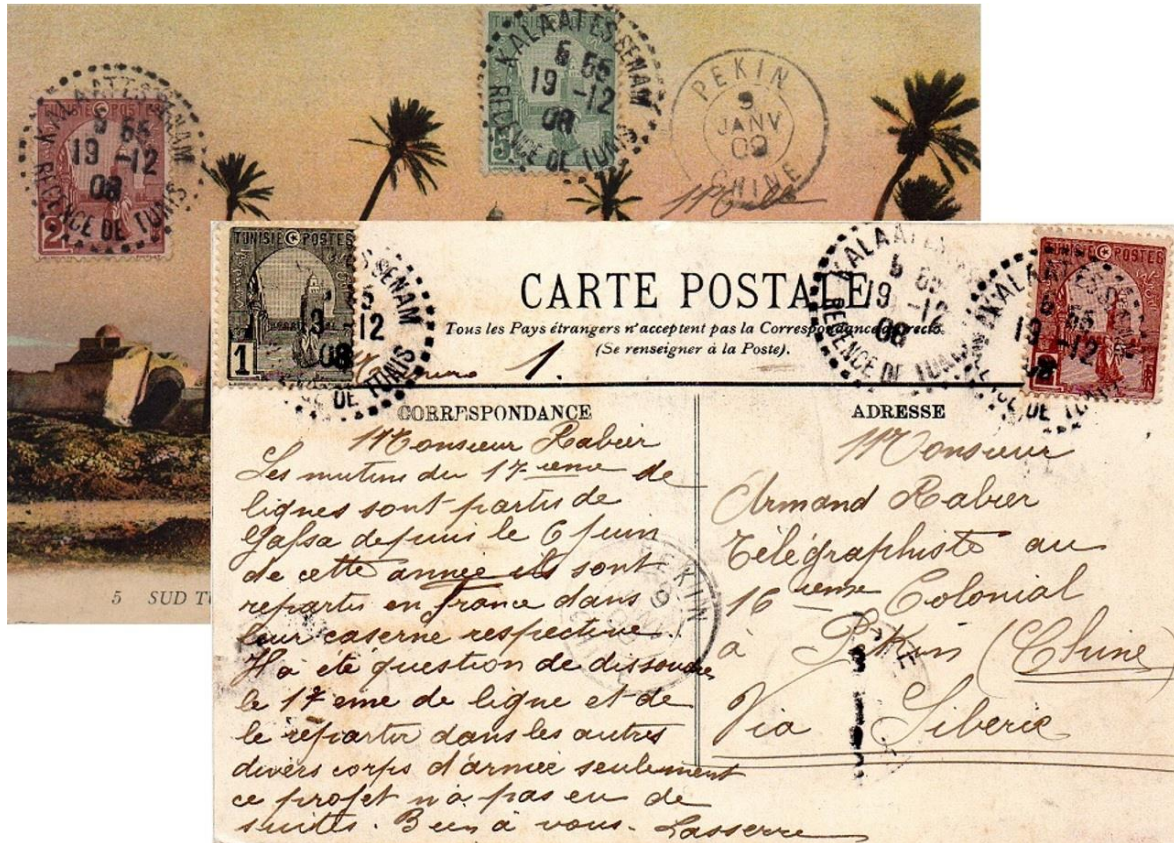 TUNISIE POSTES
2
KALAAT ES SENAM
5 55
19 -12
08
REGENCE DE TUNIS
TUNISIE POSTES
5
KALAAT ES SENAM
5 55
19 -12
08
REGENCE DE TUNIS
PEKIN
9
JANV
09
CHINE
5 SUD TU
TUNISIE POSTES
1
SENAM
-12
08
DE TUNIS
CARTE POSTALE
Tous les Pays étrangers n'acceptent pas la Correspondance au recto.
(Se renseigner à la Poste).
1.
KALAAT ES
5 55
19 -12
08
REGENCE DE TUNIS
TUNISIE POSTES
KALAAT ES SENAM
5 55
19 -12
08
DE TUNIS
CORRESPONDANCE
Monsieur Rabier
Les mutins du 17 ieme de
lignes sont partis de
Gafsa depuis le 6 juin
de cette année ils sont
repartis en france dans
leur caserne respective.
Il a été question de dissoudre
le 17 eme de ligne et de
le répartir dans les autres
divers corps d'armée seulement
ce projet n'a pas eu de
suites. Bien à vous. Lasserre
PEKIN
9
ADRESSE
Monsieur
Armand Rabier
Télégraphiste au
16 ieme Colonial
à Pékin (Chine)
Via Siberie